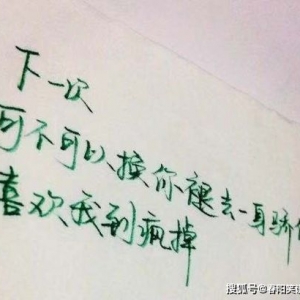 下一次
可不可以换你褪去一身骄
喜欢我到疯掉
搜狐号@春阳笑